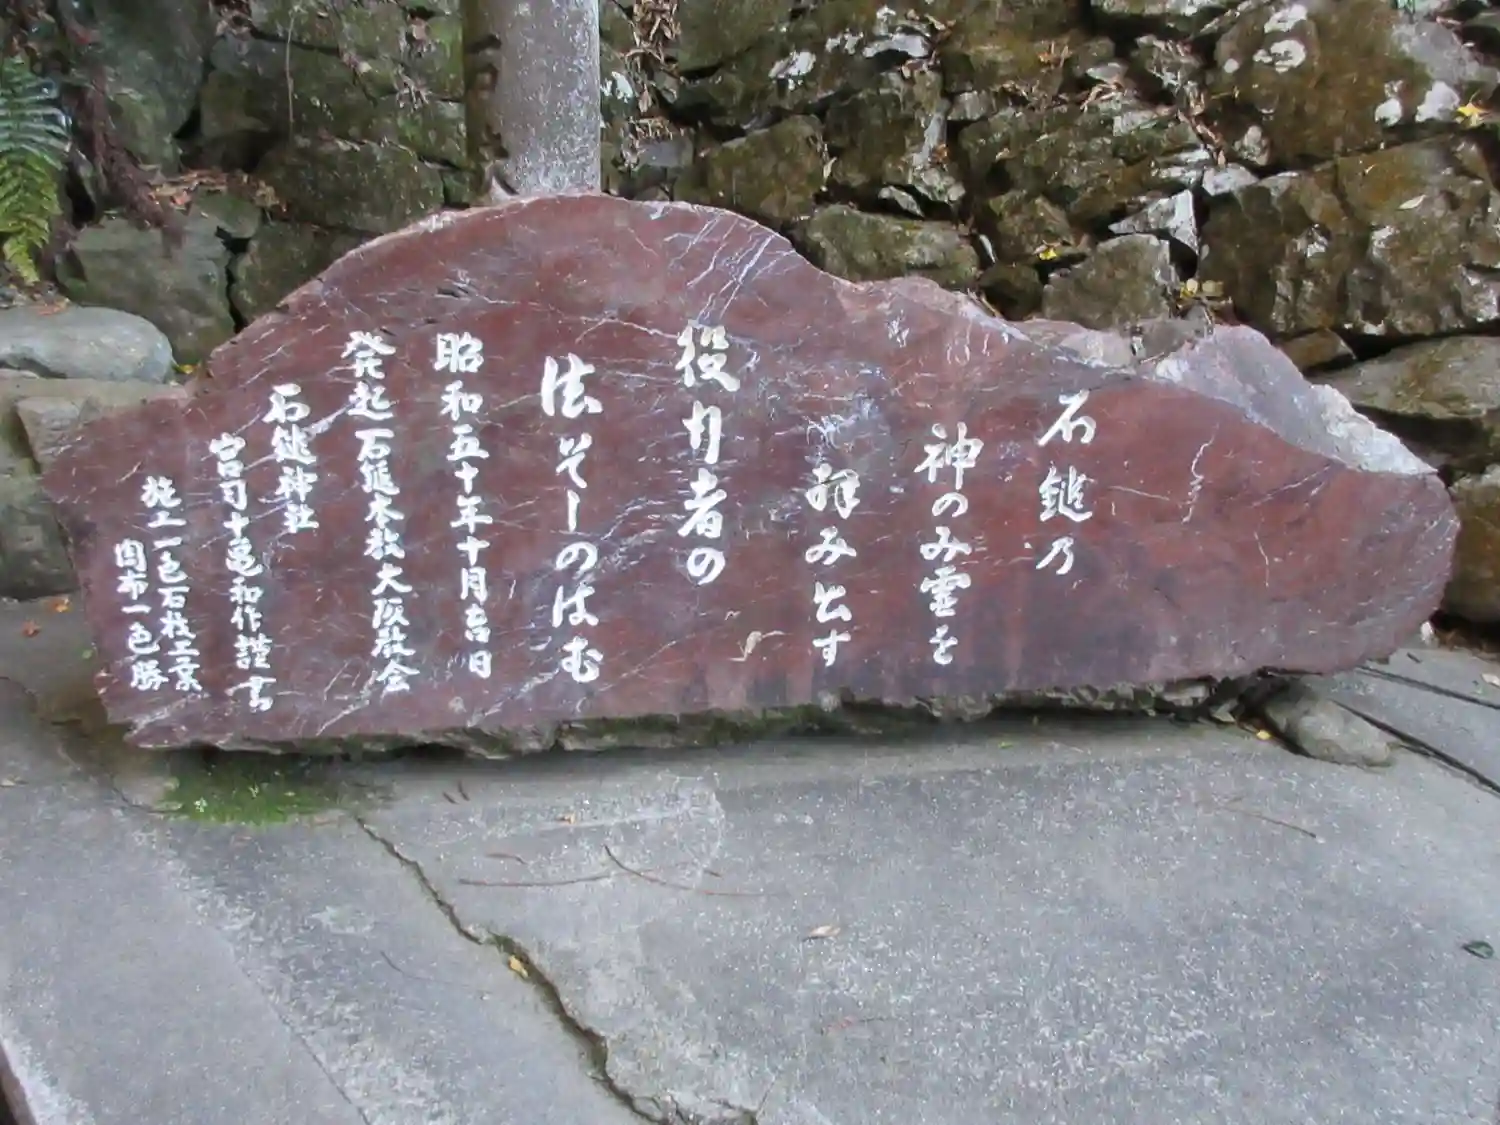 石鎚乃
神のみ霊を
拝み出す
役行者の
法そしのばむ
昭和五十年十月吉日
発起 石鎚本教大阪教会
石鎚神社
宮司十亀和作謹書
施工 一色石枝工業
周布 一色勝